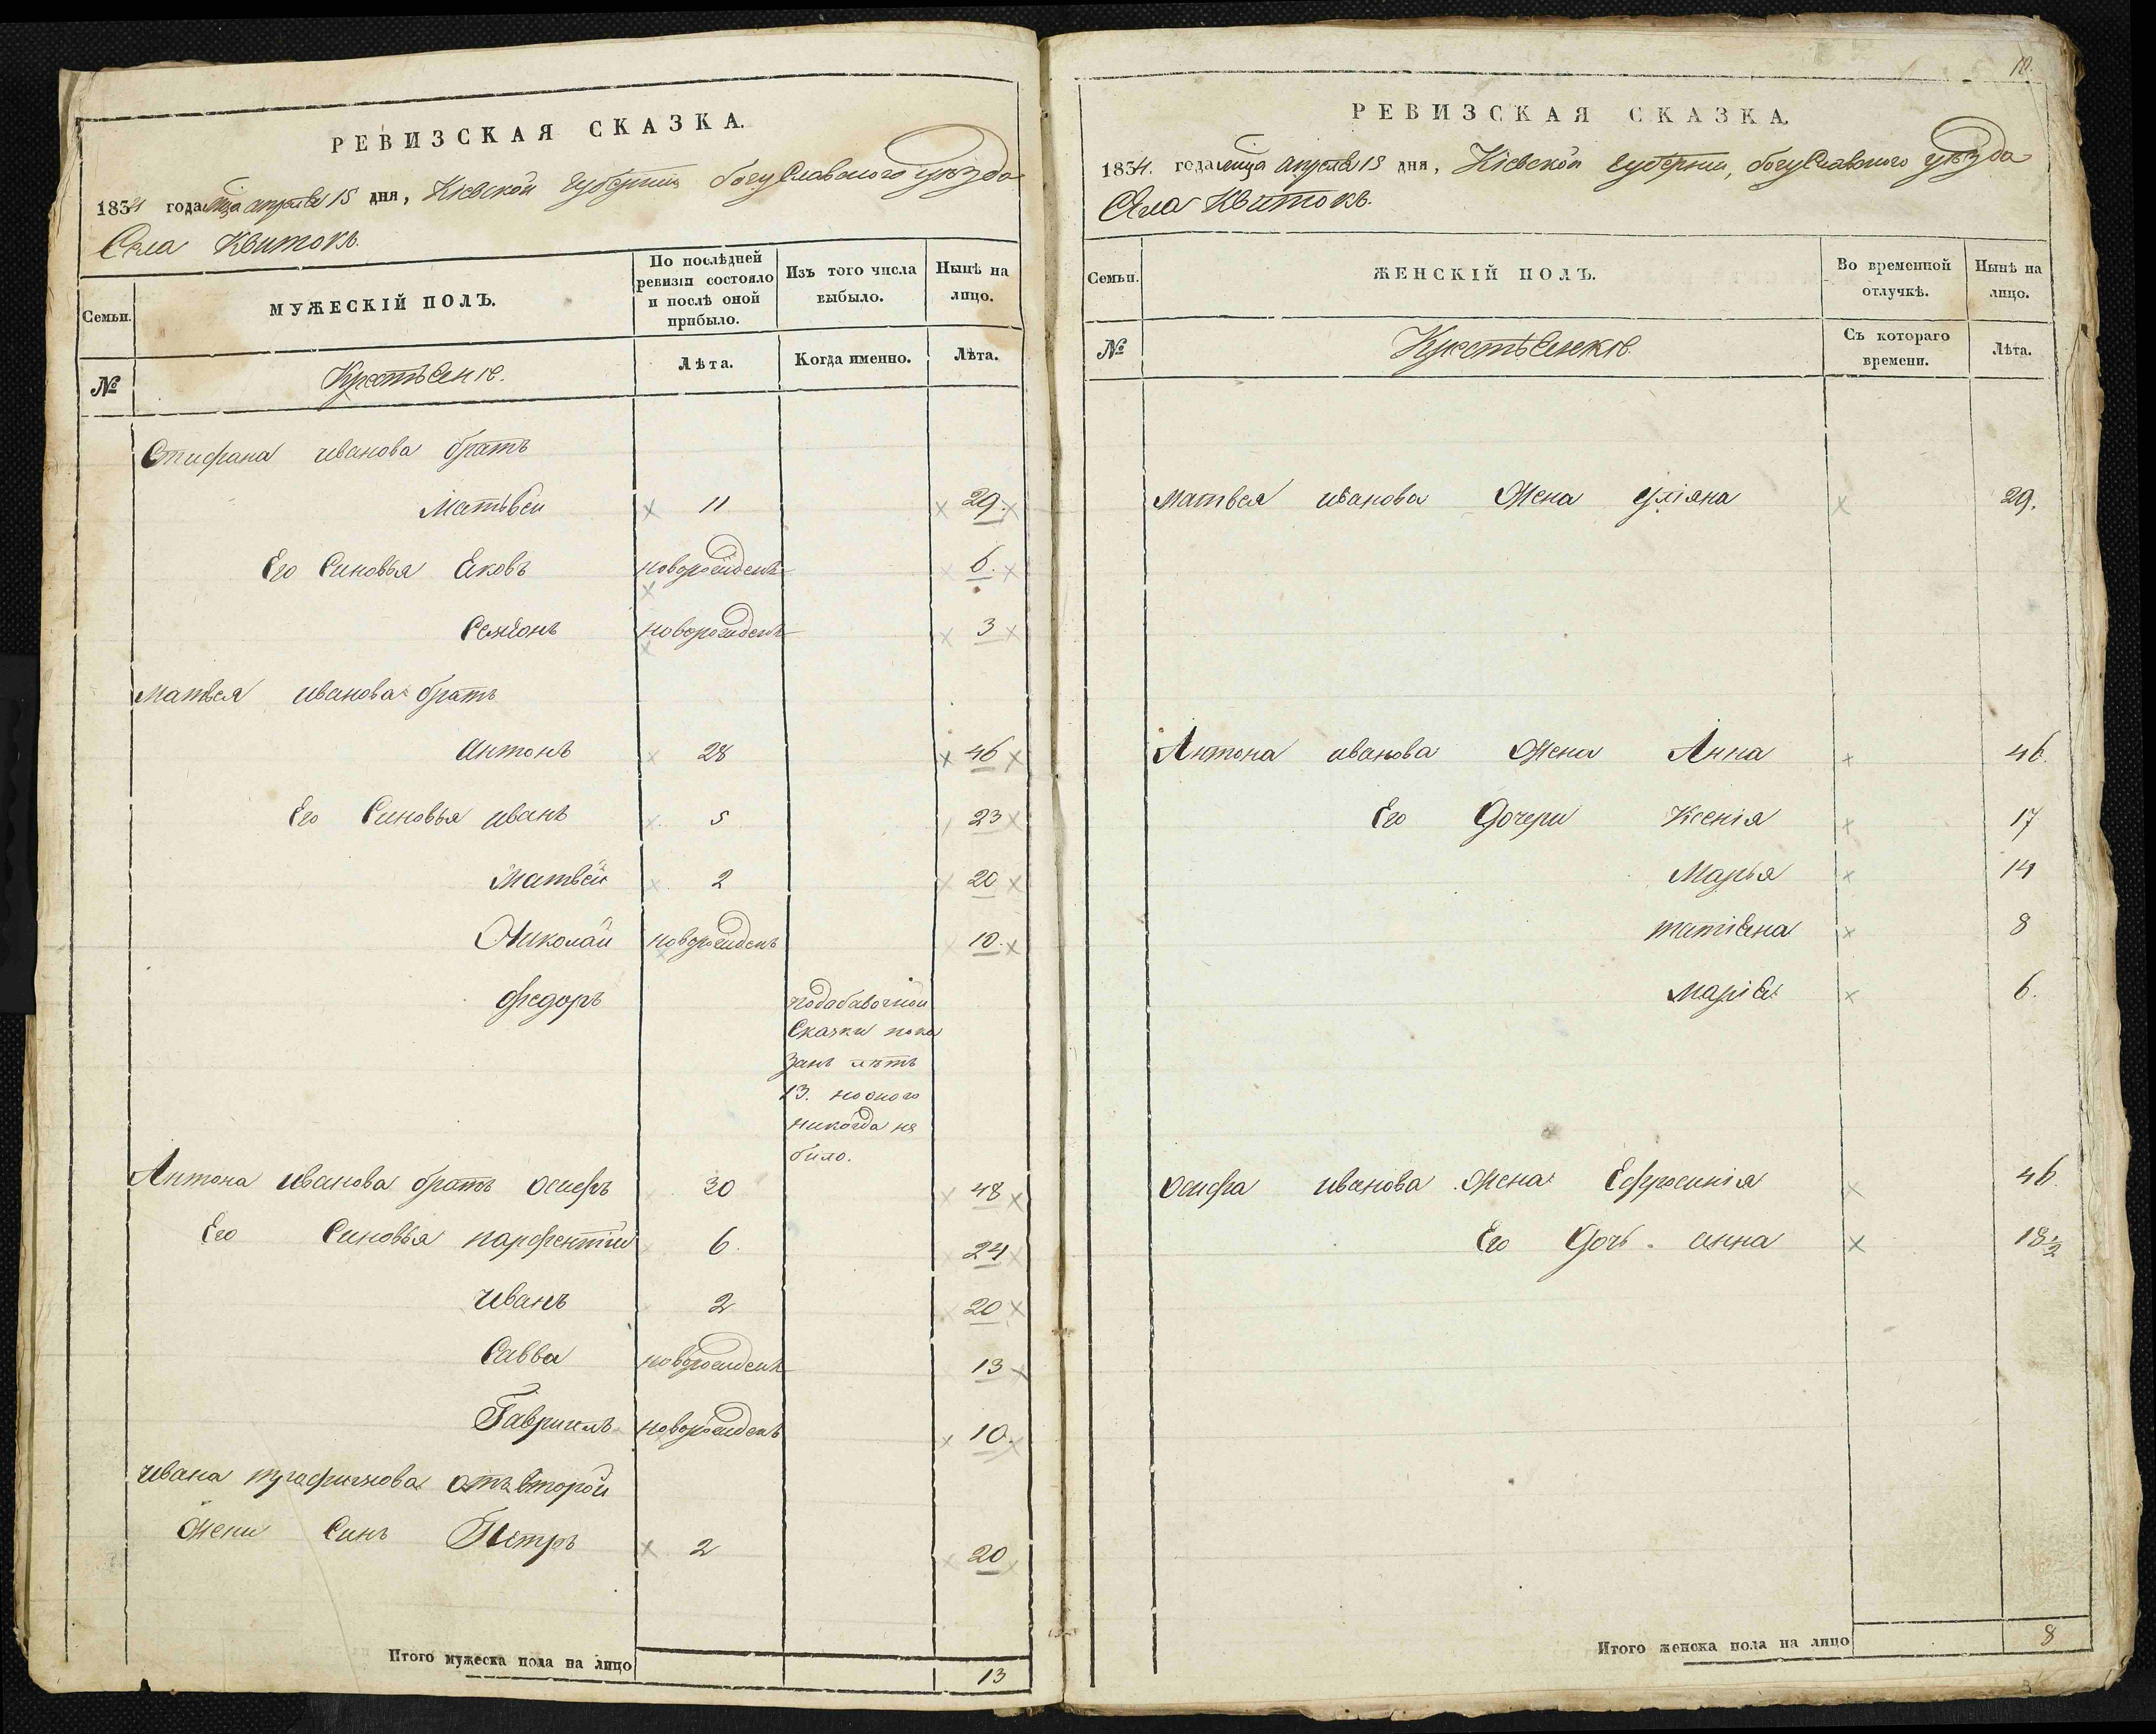 РЕВИЗСКАЯ СКАЗКА.
1834 года мѣца апрѣля 15 дня, Кіевской губерніи богуславского уѣзда
Села Квитокъ.
Семьи.
МУЖЕСКІЙ ПОЛЪ.
По послѣдней ревизіи состояло и послѣ оной прибыло.
Изъ того числа выбыло.
Нынѣ на лицо.
№
Крестьяніе.
Лѣта.
Когда именно.
Лѣта.
Стифана иванова братъ
Матьвей 11 29.
Его Синовья Яковъ новорожденъ 6.
Семионъ новорожденъ 3
Матвея иванова братъ
Антонъ 28 46
Его Синовья иванъ 5 23
Матвей 2 20
Николай новорожденъ 10.
Федоръ подабавочной
Сказки пока
занъ летъ
13. но оного
никогда не
било.
Антона иванова братъ осифъ 30 48
Его Синовья парфентий 6. 24
иванъ 2 20
Савва новорожденъ 13
Гавриилъ новорожденъ 10.
ивана отъ второй
Жени Синъ Петръ 2 20
Итого мужеска пола на лицо 13
РЕВИЗСКАЯ СКАЗКА.
1834. года мѣца апрѣля 15 дня, Кіевской губерніи, богуславского уѣзда
Села Квитокъ.
Семьи.
ЖЕНСКІЙ ПОЛЪ.
Во временной отлучкѣ.
Нынѣ на лицо.
№
Крестьянкіе.
Съ котораго времени.
Лѣта.
Матвея иванова Жена уліяна 29.
Антона иванова Жена Анна 46.
Его Дочери Ксенія 17
Марья 14
татіяна 8
Марія 6.
осифа иванова Жена Ефросинія 46
Его Дочь анна 18½
Итого женска пола на лицо 8